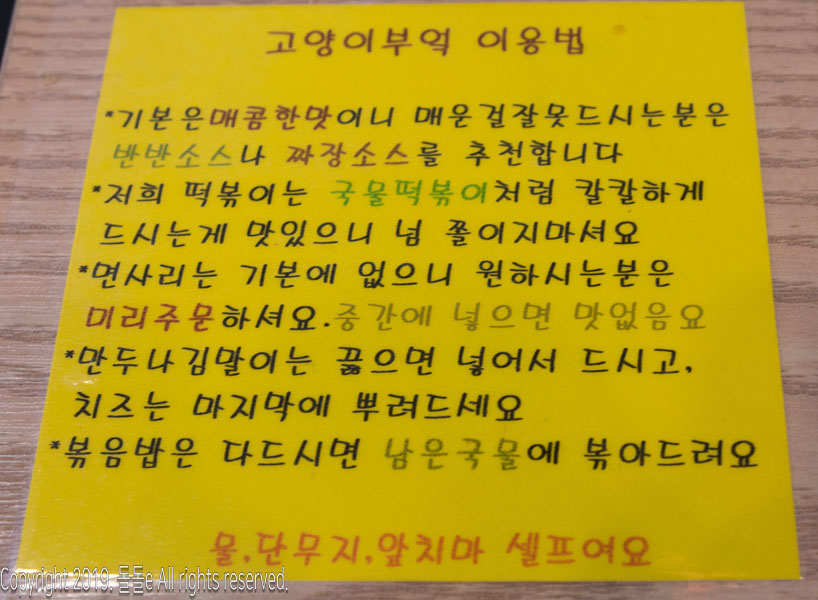 고양이부엌 이용법
*기본은매콤한맛이니 매운걸잘못드시는분은
반반소스나 짜장소스를 추천합니다
*저희 떡볶이는 국물떡볶이처럼 칼칼하게
드시는게 맛있으니 넘 쫄이지마셔요
*면사리는 기본에 없으니 원하시는분은
미리주문하셔요.중간에 넣으면 맛없음요
*만두나김말이는 끓으면 넣어서 드시고,
치즈는 마지막에 뿌려드세요
*볶음밥은 다드시면 남은국물에 볶아드려요
물.단무지.앞치마 셀프여요
Copyright 2019. 돌돌e All rights reserved.